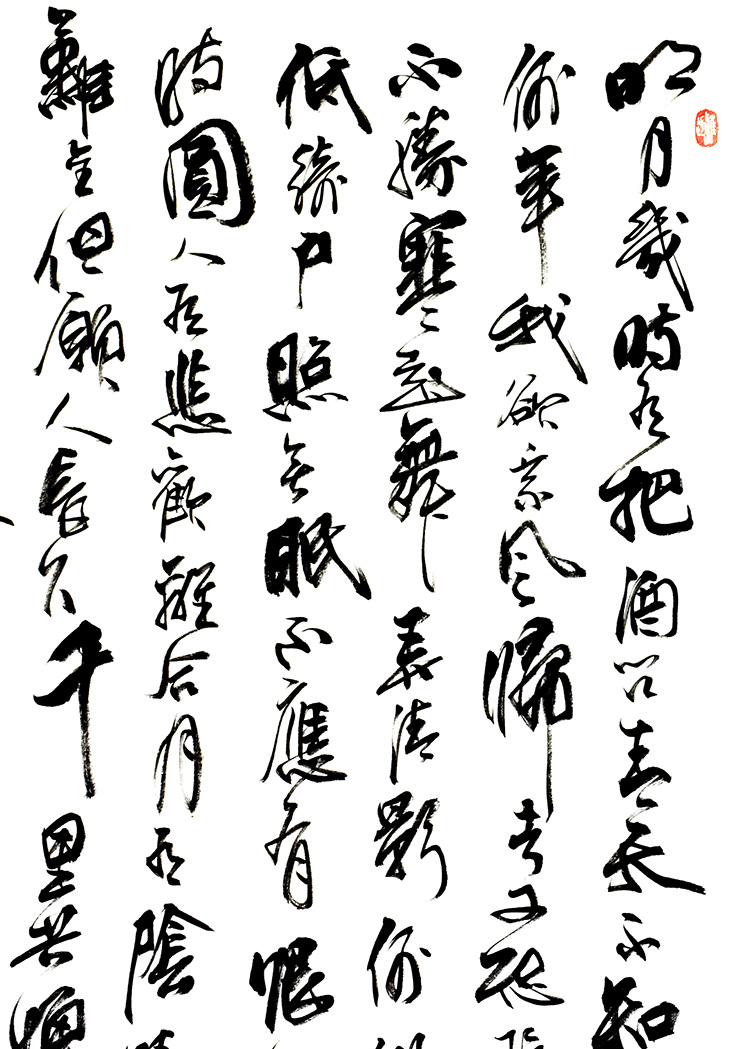 明月幾時有把酒问青天不知
何年我欲乘风歸去又恐
不勝寒起舞弄清影何
低绮户照無眠不應有恨
时圓人有悲歡離合月有陰
難全但願人長久千里共